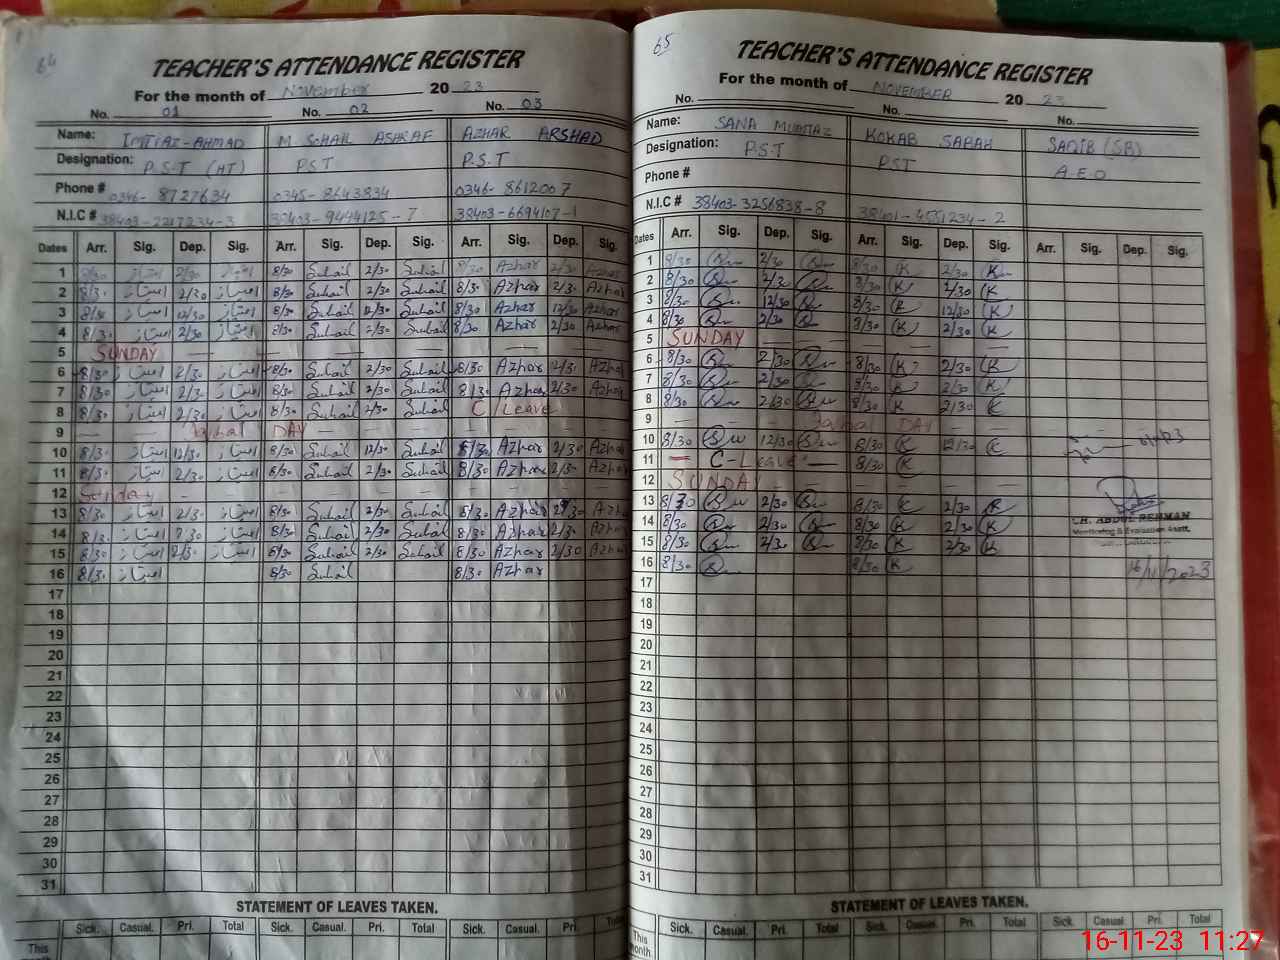 64
TEACHER'S ATTENDANCE REGISTER
For the month of NOVEMBER 2023
No. 01 No. 02 No. 03
Name: IMTIAZ-AHMAD M SOHAIL ASHRAF AZHAR ARSHAD
Designation: P.S.T (HT) PST P.S.T
Phone # 0346-8727634 0345-8643834 0346-8612007
N.I.C # 38403-2217234-3 38403-9494125-7 38403-6694107-1
Dates Arr. Sig. Dep. Sig. Arr. Sig. Dep. Sig. Arr. Sig. Dep. Sig.
1 8/30 امتیاز 2/30 امتیاز 8/30 Suhail 2/30 Suhail 8/30 Azhar 2/30 Azhar
2 8/30 امتیاز 2/30 امتیاز 8/30 Suhail 2/30 Suhail 8/30 Azhar 2/30 Azhar
3 8/30 امتیاز 12/30 امتیاز 8/30 Suhail 12/30 Suhail 8/30 Azhar 12/30 Azhar
4 8/30 امتیاز 2/30 امتیاز 8/30 Suhail 2/30 Suhail 8/30 Azhar 2/30 Azhar
5 SUNDAY
6 8/30 امتیاز 2/30 امتیاز 8/30 Suhail 2/30 Suhail 8/30 Azhar 2/30 Azhar
7 8/30 امتیاز 2/30 امتیاز 8/30 Suhail 2/30 Suhail 8/30 Azhar 2/30 Azhar
8 8/30 امتیاز 2/30 امتیاز 8/30 Suhail 2/30 Suhail C Leave
9 Iqbal DAY
10 8/30 امتیاز 12/30 امتیاز 8/30 Suhail 12/30 Suhail 8/30 Azhar 2/30 Azhar
11 8/30 امتیاز 2/30 امتیاز 8/30 Suhail 2/30 Suhail 8/30 Azhar 2/30 Azhar
12 Sunday
13 8/30 امتیاز 2/30 امتیاز 8/30 Suhail 2/30 Suhail 8/30 Azhar 2/30 Azhar
14 8/30 امتیاز 2/30 امتیاز 8/30 Suhail 2/30 Suhail 8/30 Azhar 2/30 Azhar
15 8/30 امتیاز 2/30 امتیاز 8/30 Suhail 2/30 Suhail 8/30 Azhar 2/30 Azhar
16 8/30 امتیاز 8/30 Suhail 8/30 Azhar
17
18
19
20
21
22
23
24
25
26
27
28
29
30
31
STATEMENT OF LEAVES TAKEN.
Sick. Casual. Pri. Total Sick. Casual. Pri. Total Sick. Casual. Pri. Total
This month
65
TEACHER'S ATTENDANCE REGISTER
For the month of NOVEMBER 2023
No. No. No.
Name: SANA MUMTAZ KOKAB SABAH SAQIB (SB)
Designation: P.S.T PST A.E.O
Phone #
N.I.C # 38403-3256838-8 38401-4551234-2
Dates Arr. Sig. Dep. Sig. Arr. Sig. Dep. Sig. Arr. Sig. Dep. Sig.
1 8/30 2/30 8/30 K 2/30 K
2 8/30 2/30 8/30 K 2/30 K
3 8/30 12/30 8/30 K 12/30 K
4 8/30 2/30 8/30 K 2/30 K
5 SUNDAY
6 8/30 2/30 8/30 K 2/30 K
7 8/30 2/30 8/30 K 2/30 K
8 8/30 2/30 8/30 K 2/30 K
9 Iqbal DAY
10 8/30 12/30 8/30 K 12/30 K
11 C-Leave 8/30 K
12 SUNDAY
13 8/30 2/30 8/30 K 2/30 K
14 8/30 2/30 8/30 K 2/30 K
CH. ABDUL REHMAN
Monitoring & Evaluation Asstt.
15 8/30 2/30 8/30 K 2/30 K
16 8/30 8/30 K 16/11/2023
17
18
19
20
21
22
23
24
25
26
27
28
29
30
31
STATEMENT OF LEAVES TAKEN.
Sick. Casual. Pri. Total Sick. Casual Pri. Total Sick. Casual Pri. Total
This month
16-11-23 11:27